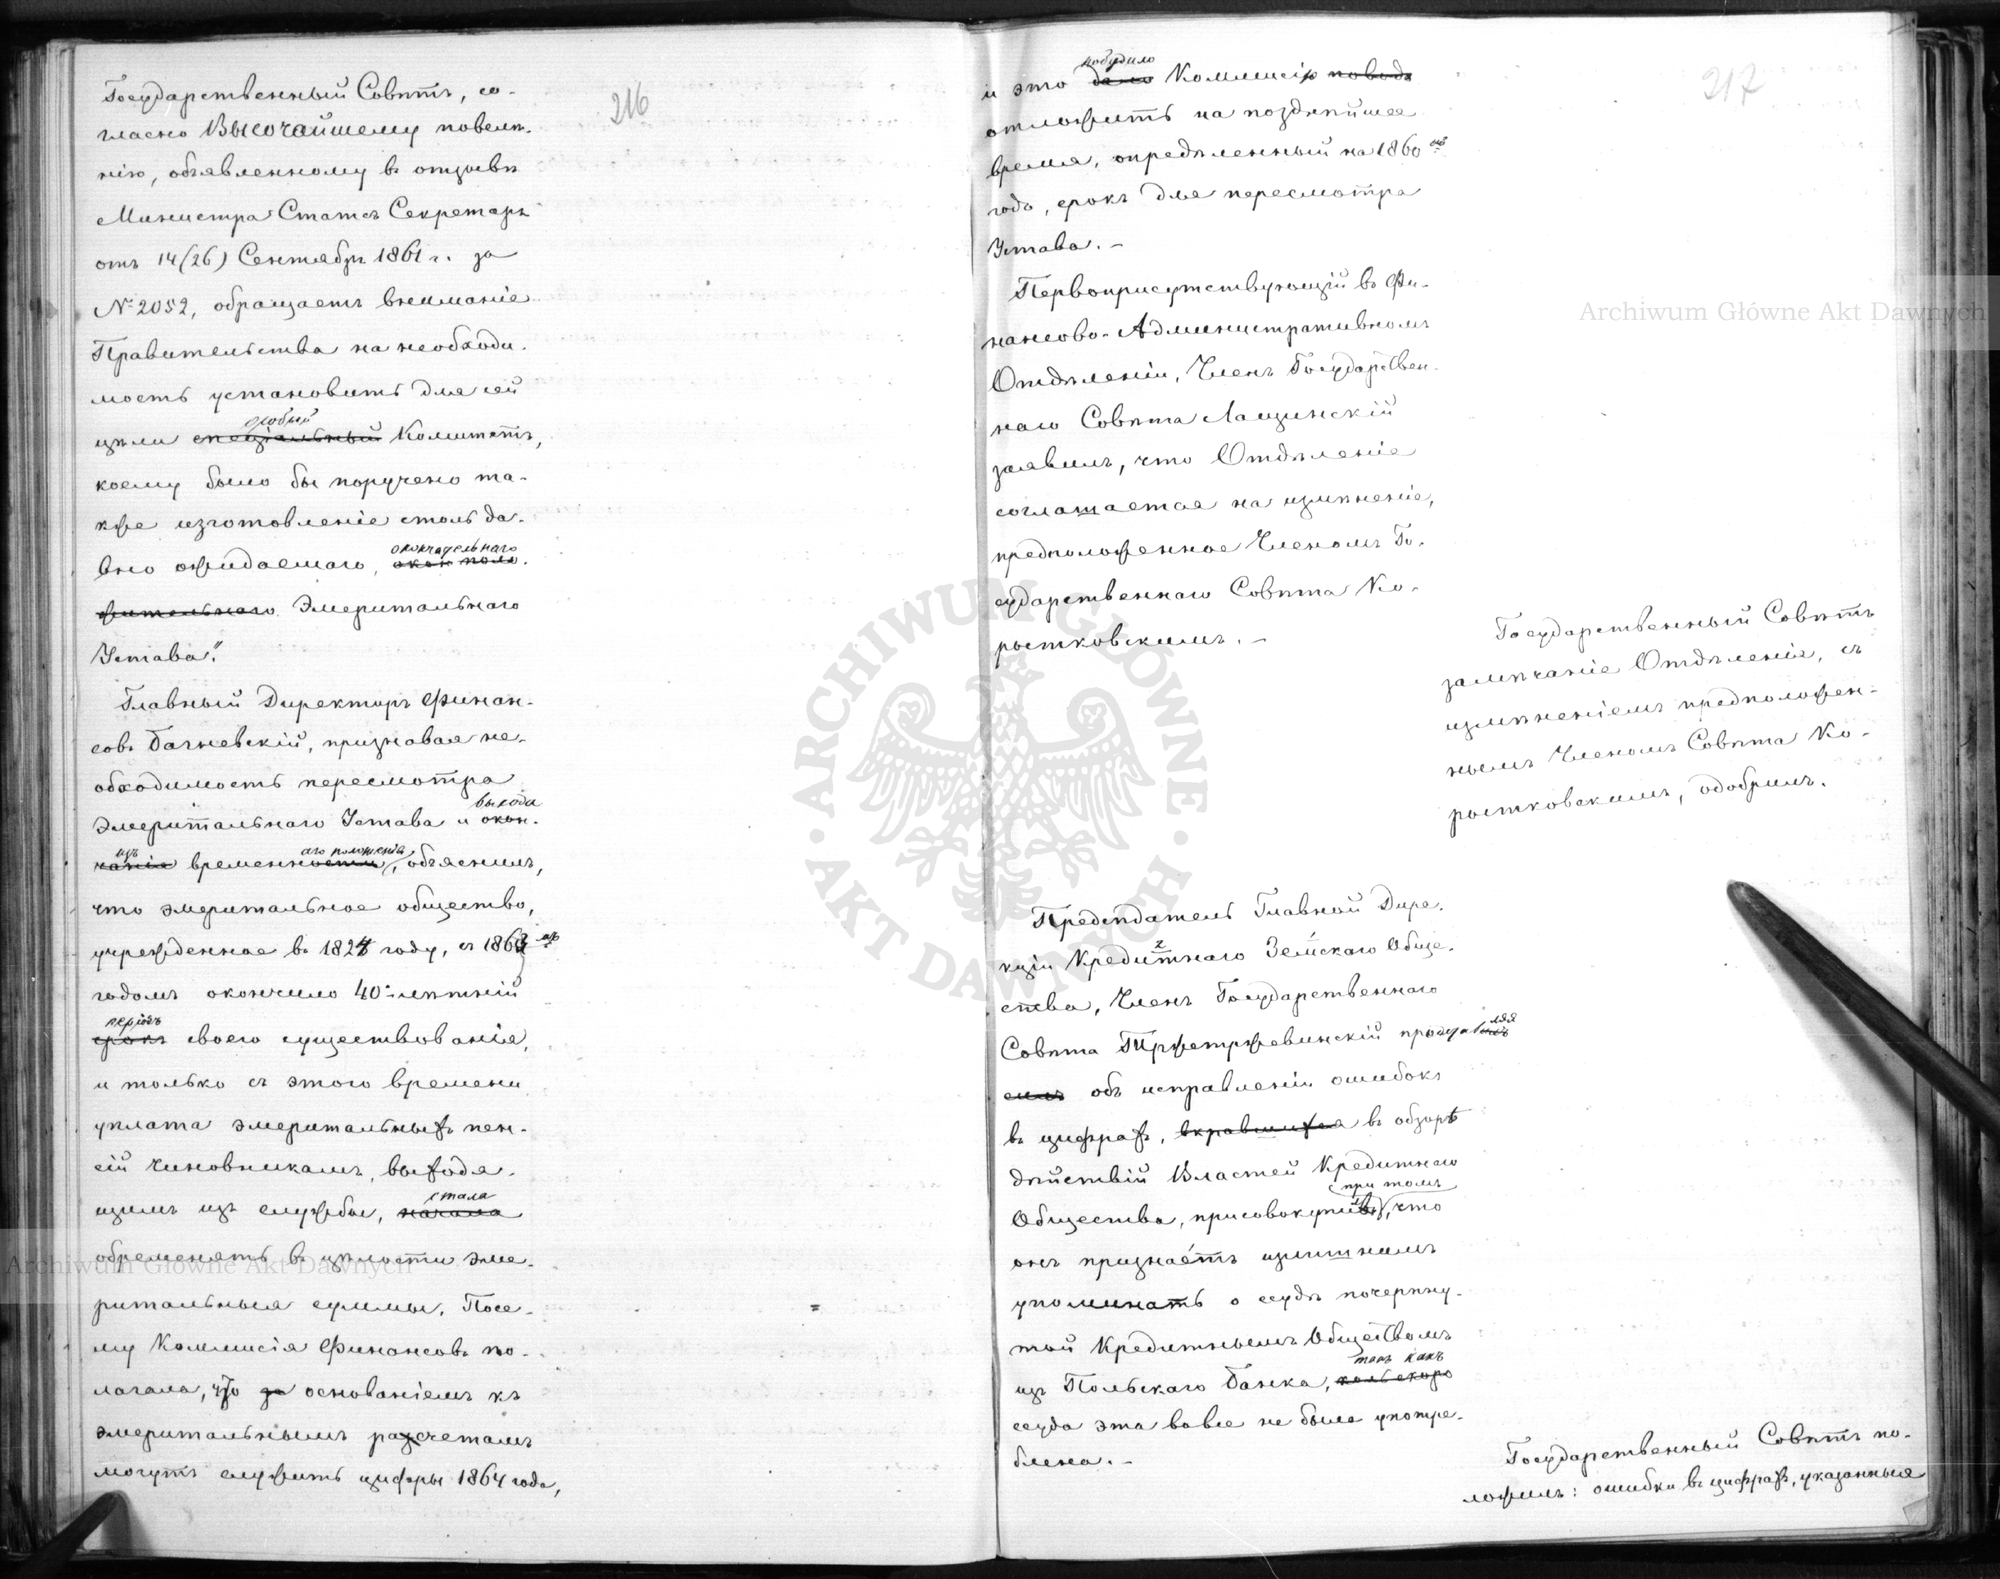 216
Государственный Совѣтъ, со-
гласно Высочайшему повелѣ-
нію, объявленному въ отзывѣ
Министра Статсъ Секретаря
отъ 14 (26) Сентября 1861 г. за
№ 2052, обращаетъ вниманіе
Правительства на необходи-
мость установить для сей
особый
цѣли спеціальный Комитетъ,
коему было бы поручено та-
кже изготовленіе столь да-
окончательнаго
вно ожидаемаго, окон поло-
жительнаго Эмеритальнаго
Устава".
Главный Директоръ Финан-
совъ Багневскій, признавая не-
обходимость пересмотра
выхода
Эмеритальнаго Устава и окон-
изъ аго положенія
чанія временности, объяснилъ,
что эмеритальное общество,
учрежденное въ 1824 году, съ 1863 мъ
годомъ окончило 40-лѣтній
періодъ
срокъ своего существованія,
и только съ этого времени
уплата эмеритальныхъ пен-
сій чиновникамъ, выходя-
стала
щимъ изъ службы, начала
обременять въ цѣлости эме-
ритальныя суммы. Посе-
му Коммисія Финансовъ по-
лагала, что за основаніемъ къ
эмеритальнымъ расчетамъ
могутъ служить цифры 1864 года,
217
побудило
и это дало Коммисію поводъ
отложить на позднѣйшее
время, опредѣленный на 1860 ой
годъ, срокъ для пересмотра
Устава. –
Первоприсутствующій въ Фи-
нансово-Административномъ
Отдѣленіи, Членъ Государствен-
наго Совѣта Лащинскій
заявилъ, что Отдѣленіе
соглашается на измѣненіе,
предположенное Членомъ Го-
сударственнаго Совѣта Ко-
ростковскимъ. –
Государственный Совѣтъ
замѣчаніе Отдѣленія, съ
измѣненіемъ предположен-
нымъ Членомъ Совѣта Ко-
ростковскимъ, одобрилъ.
Предсѣдатель Главной Дире-
кціи Кредитнаго Земскаго Обще-
ства, Членъ Государственнаго
ляя
Совѣта Тржетржевинскій
объ исправленіи ошибокъ
въ цифрахъ, вкравшихся въ обзорѣ
дѣйствій Властей Кредитнаго
при томъ
Общества, присовокупивъ, что
онъ признаётъ излишнимъ
упоминать о ссудѣ почерпну-
той Кредитнымъ Обществомъ
такъ какъ
изъ Польскаго Банка, коль скоро
ссуда эта вовсе не была употре-
блена. –
Государственный Совѣтъ по-
ложилъ: ошибки въ цифрахъ, указанныя
Archiwum Główne Akt Dawnych
Archiwum Główne Akt Dawnych
ARCHIWUM GŁÓWNE · AKT DAWNYCH ·